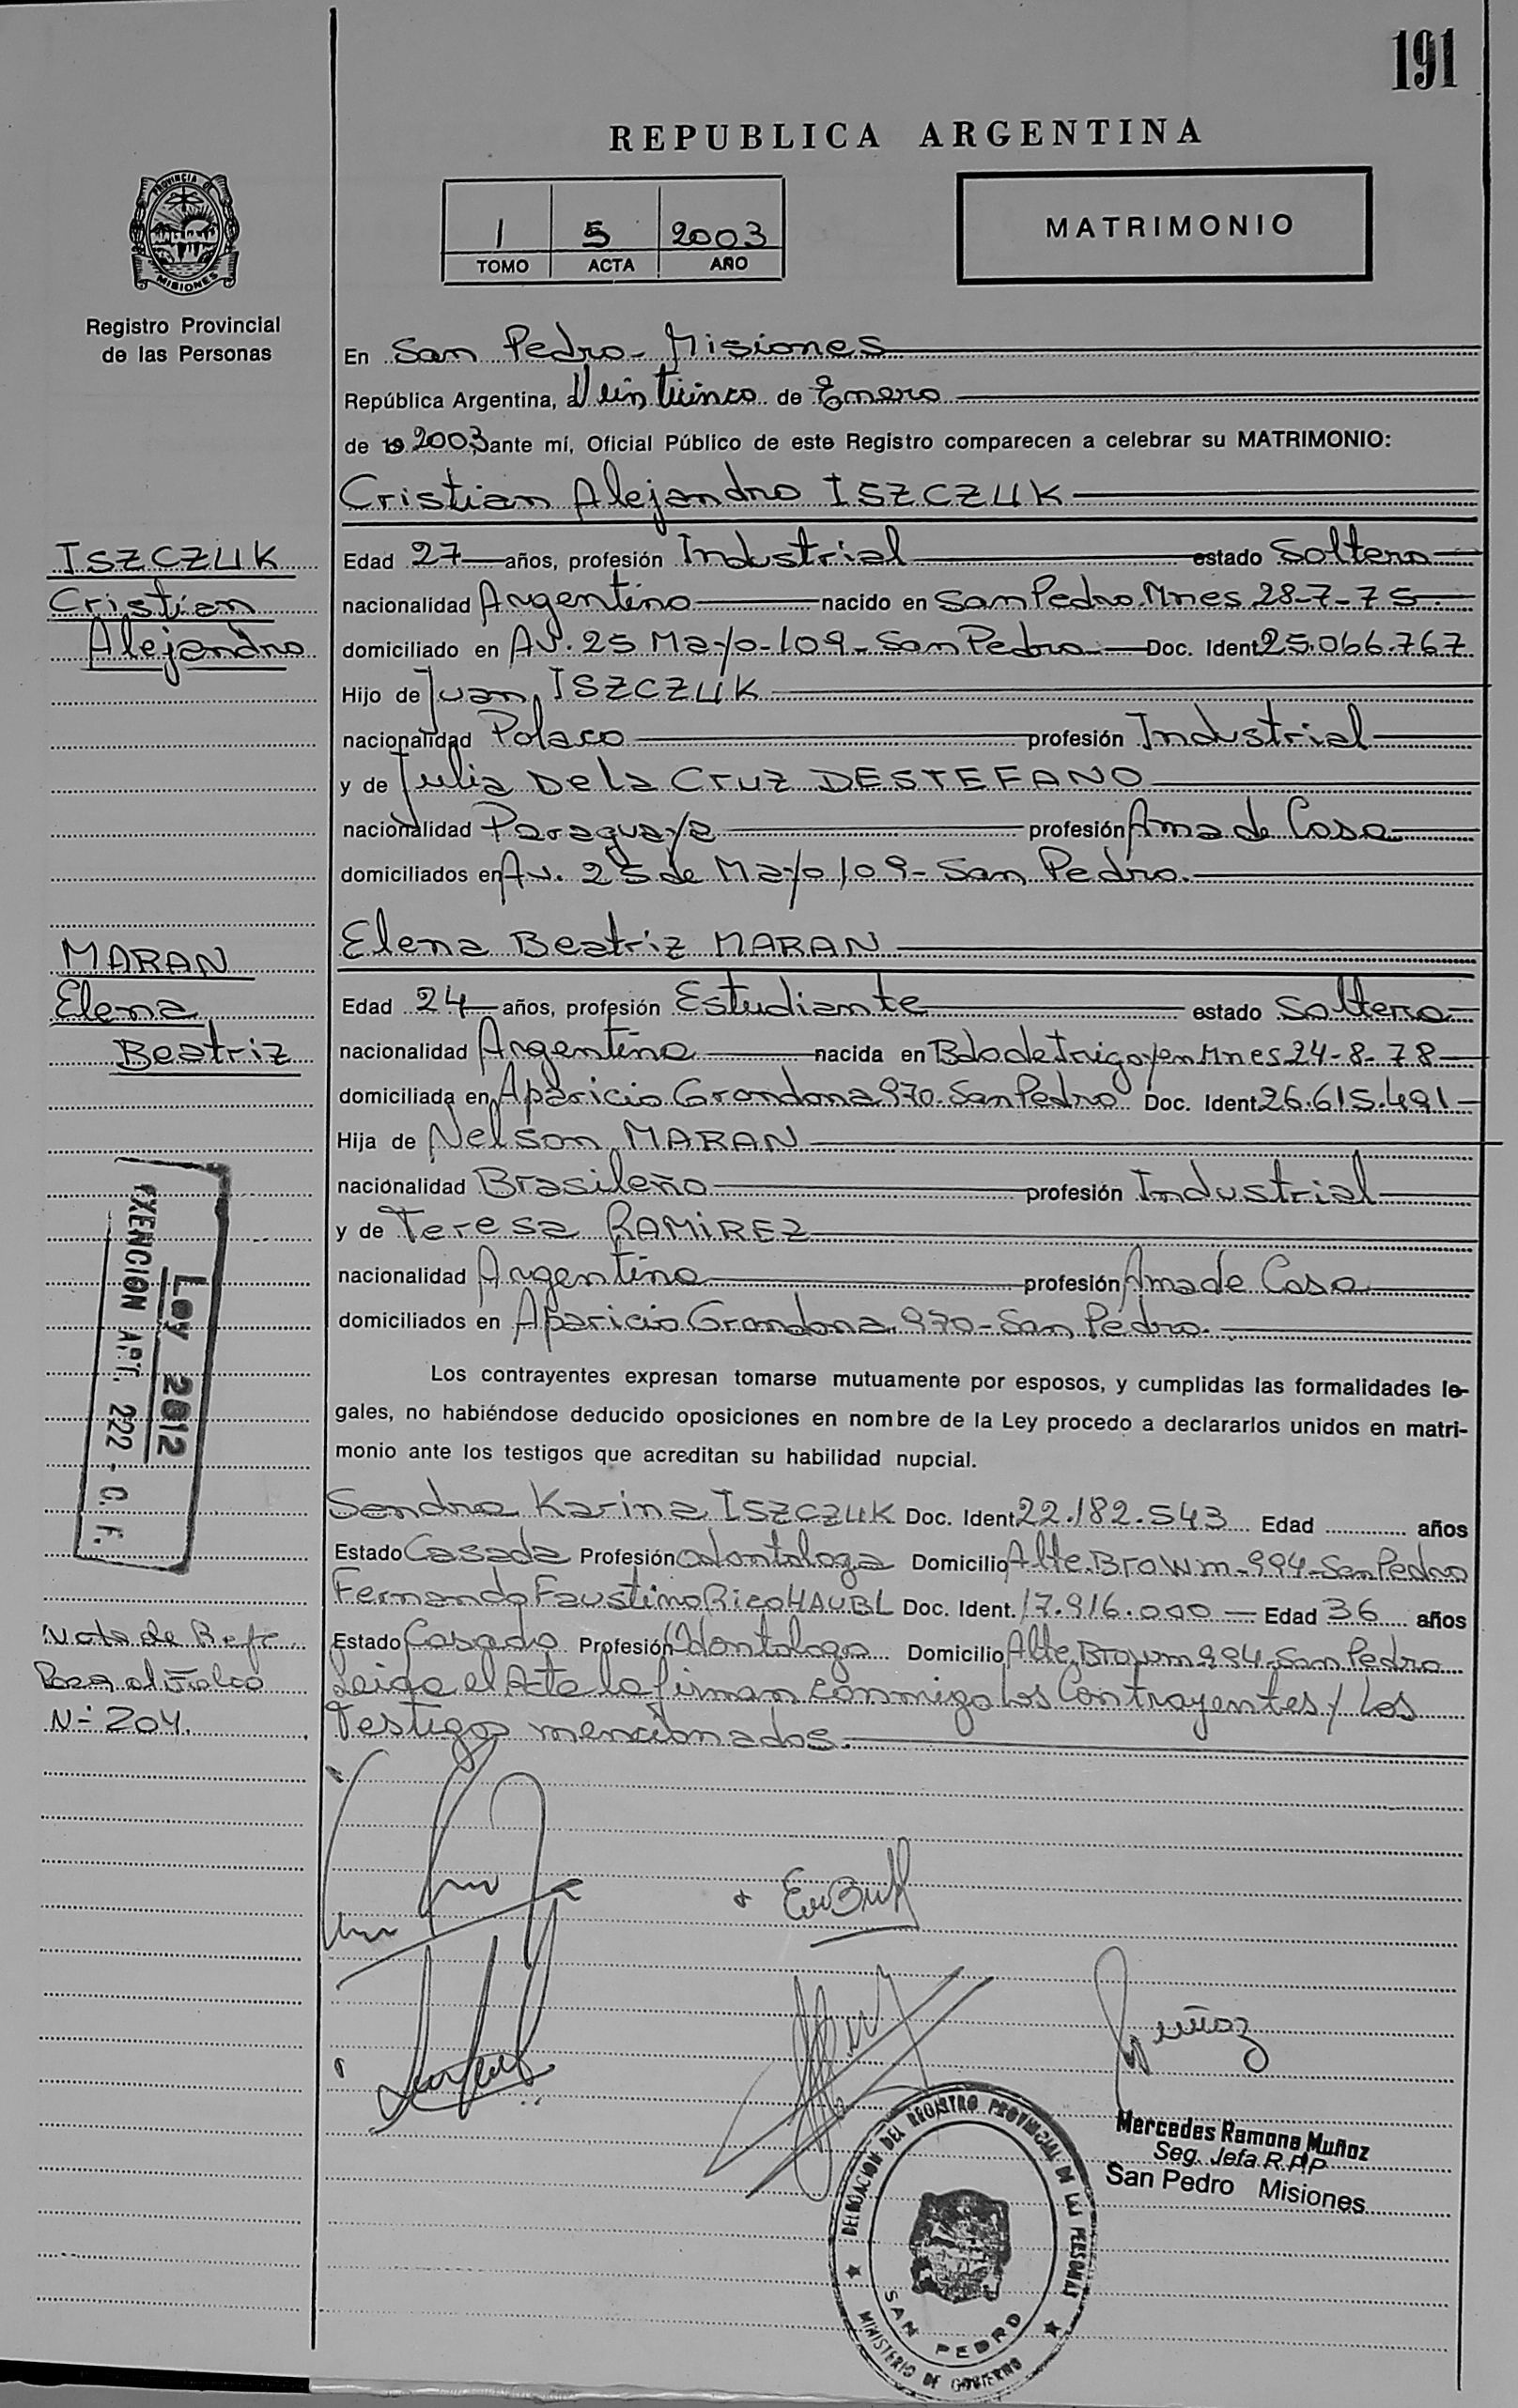 191
REPUBLICA ARGENTINA
1 5 2003
TOMO ACTA AÑO
MATRIMONIO
PROVINCIA DE
MISIONES
Registro Provincial
de las Personas
En San Pedro - Misiones
República Argentina, a Veinticinco de Enero
de 19 2003 ante mí, Oficial Público de este Registro comparecen a celebrar su MATRIMONIO:
Cristian Alejandro ISZCZUK
ISZCZUK
Cristian
Alejandro
Edad 27 años, profesión Industrial estado Soltero
nacionalidad Argentino nacido en San Pedro. Mnes 28-7-75
domiciliado en Av. 25 Mayo-109-San Pedro Doc. Ident 25.066.767
Hijo de Juan ISZCZUK
nacionalidad Polaco profesión Industrial
y de Julia De la Cruz DESTEFANO
nacionalidad Paraguaya profesión Ama de Casa
domiciliados en Av. 25 de Mayo 109-San Pedro.
MARAN
Elena
Beatriz
Elena Beatriz MARAN
Edad 24 años, profesión Estudiante estado Soltera
nacionalidad Argentina nacida en Bdo de Irigoyen Mnes 24-8-78
domiciliada en Aparicio Grondona 970-San Pedro Doc. Ident 26.615.491
Hija de Nelson MARAN
nacionalidad Brasileño profesión Industrial
y de Teresa RAMIREZ
nacionalidad Argentina profesión Ama de Casa
domiciliados en Aparicio Grondona 970-San Pedro.
Ley 2812
EXENCION ART. 222 - C. F.
Los contrayentes expresan tomarse mutuamente por esposos, y cumplidas las formalidades le-
gales, no habiéndose deducido oposiciones en nombre de la Ley procedo a declararlos unidos en matri-
monio ante los testigos que acreditan su habilidad nupcial.
Sandra Karina ISZCZUK Doc. Ident 22.182.543 Edad años
Estado Casada Profesión Odontologa Domicilio Alte. Brown-994-San Pedro
Fernando Faustino Rico HAUBL Doc. Ident. 17.916.000 Edad 36 años
Estado Casado Profesión Odontologo Domicilio Alte. Brown 994-San Pedro
Leida el Acta la firman conmigo los Contrayentes y los
Testigos mencionados.
Nota de Refe
Pasa al Folio
N- 204.
Muñoz
Mercedes Ramona Muñoz
Seg. Jefa R.P.P
San Pedro Misiones
DELEGACION DEL REGISTRO PROVINCIAL DE LAS PERSONAS
SAN PEDRO
MINISTERIO DE GOBIERNO